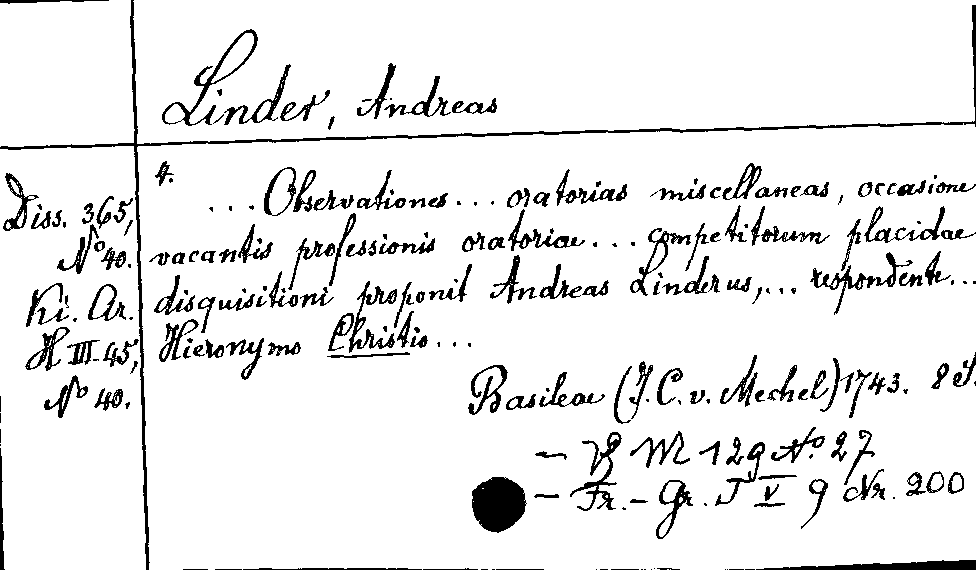 Linder, Andreas
4.
Diss. 365,
No 40.
Ki. Ar.
H III 45,
No 40.
...Observationes... oratorias miscellaneas, occasione
vacantis professionis oratoriae... competitorum placidae
disquisitioni proponit Andreas Linderus,... respondente...
Hieronymo Christio...
Basileae (J. C. v. Mechel) 1743. 8 S.
– VB M 129 No 27
– Fr.-Gr. J V 9 Nr. 200